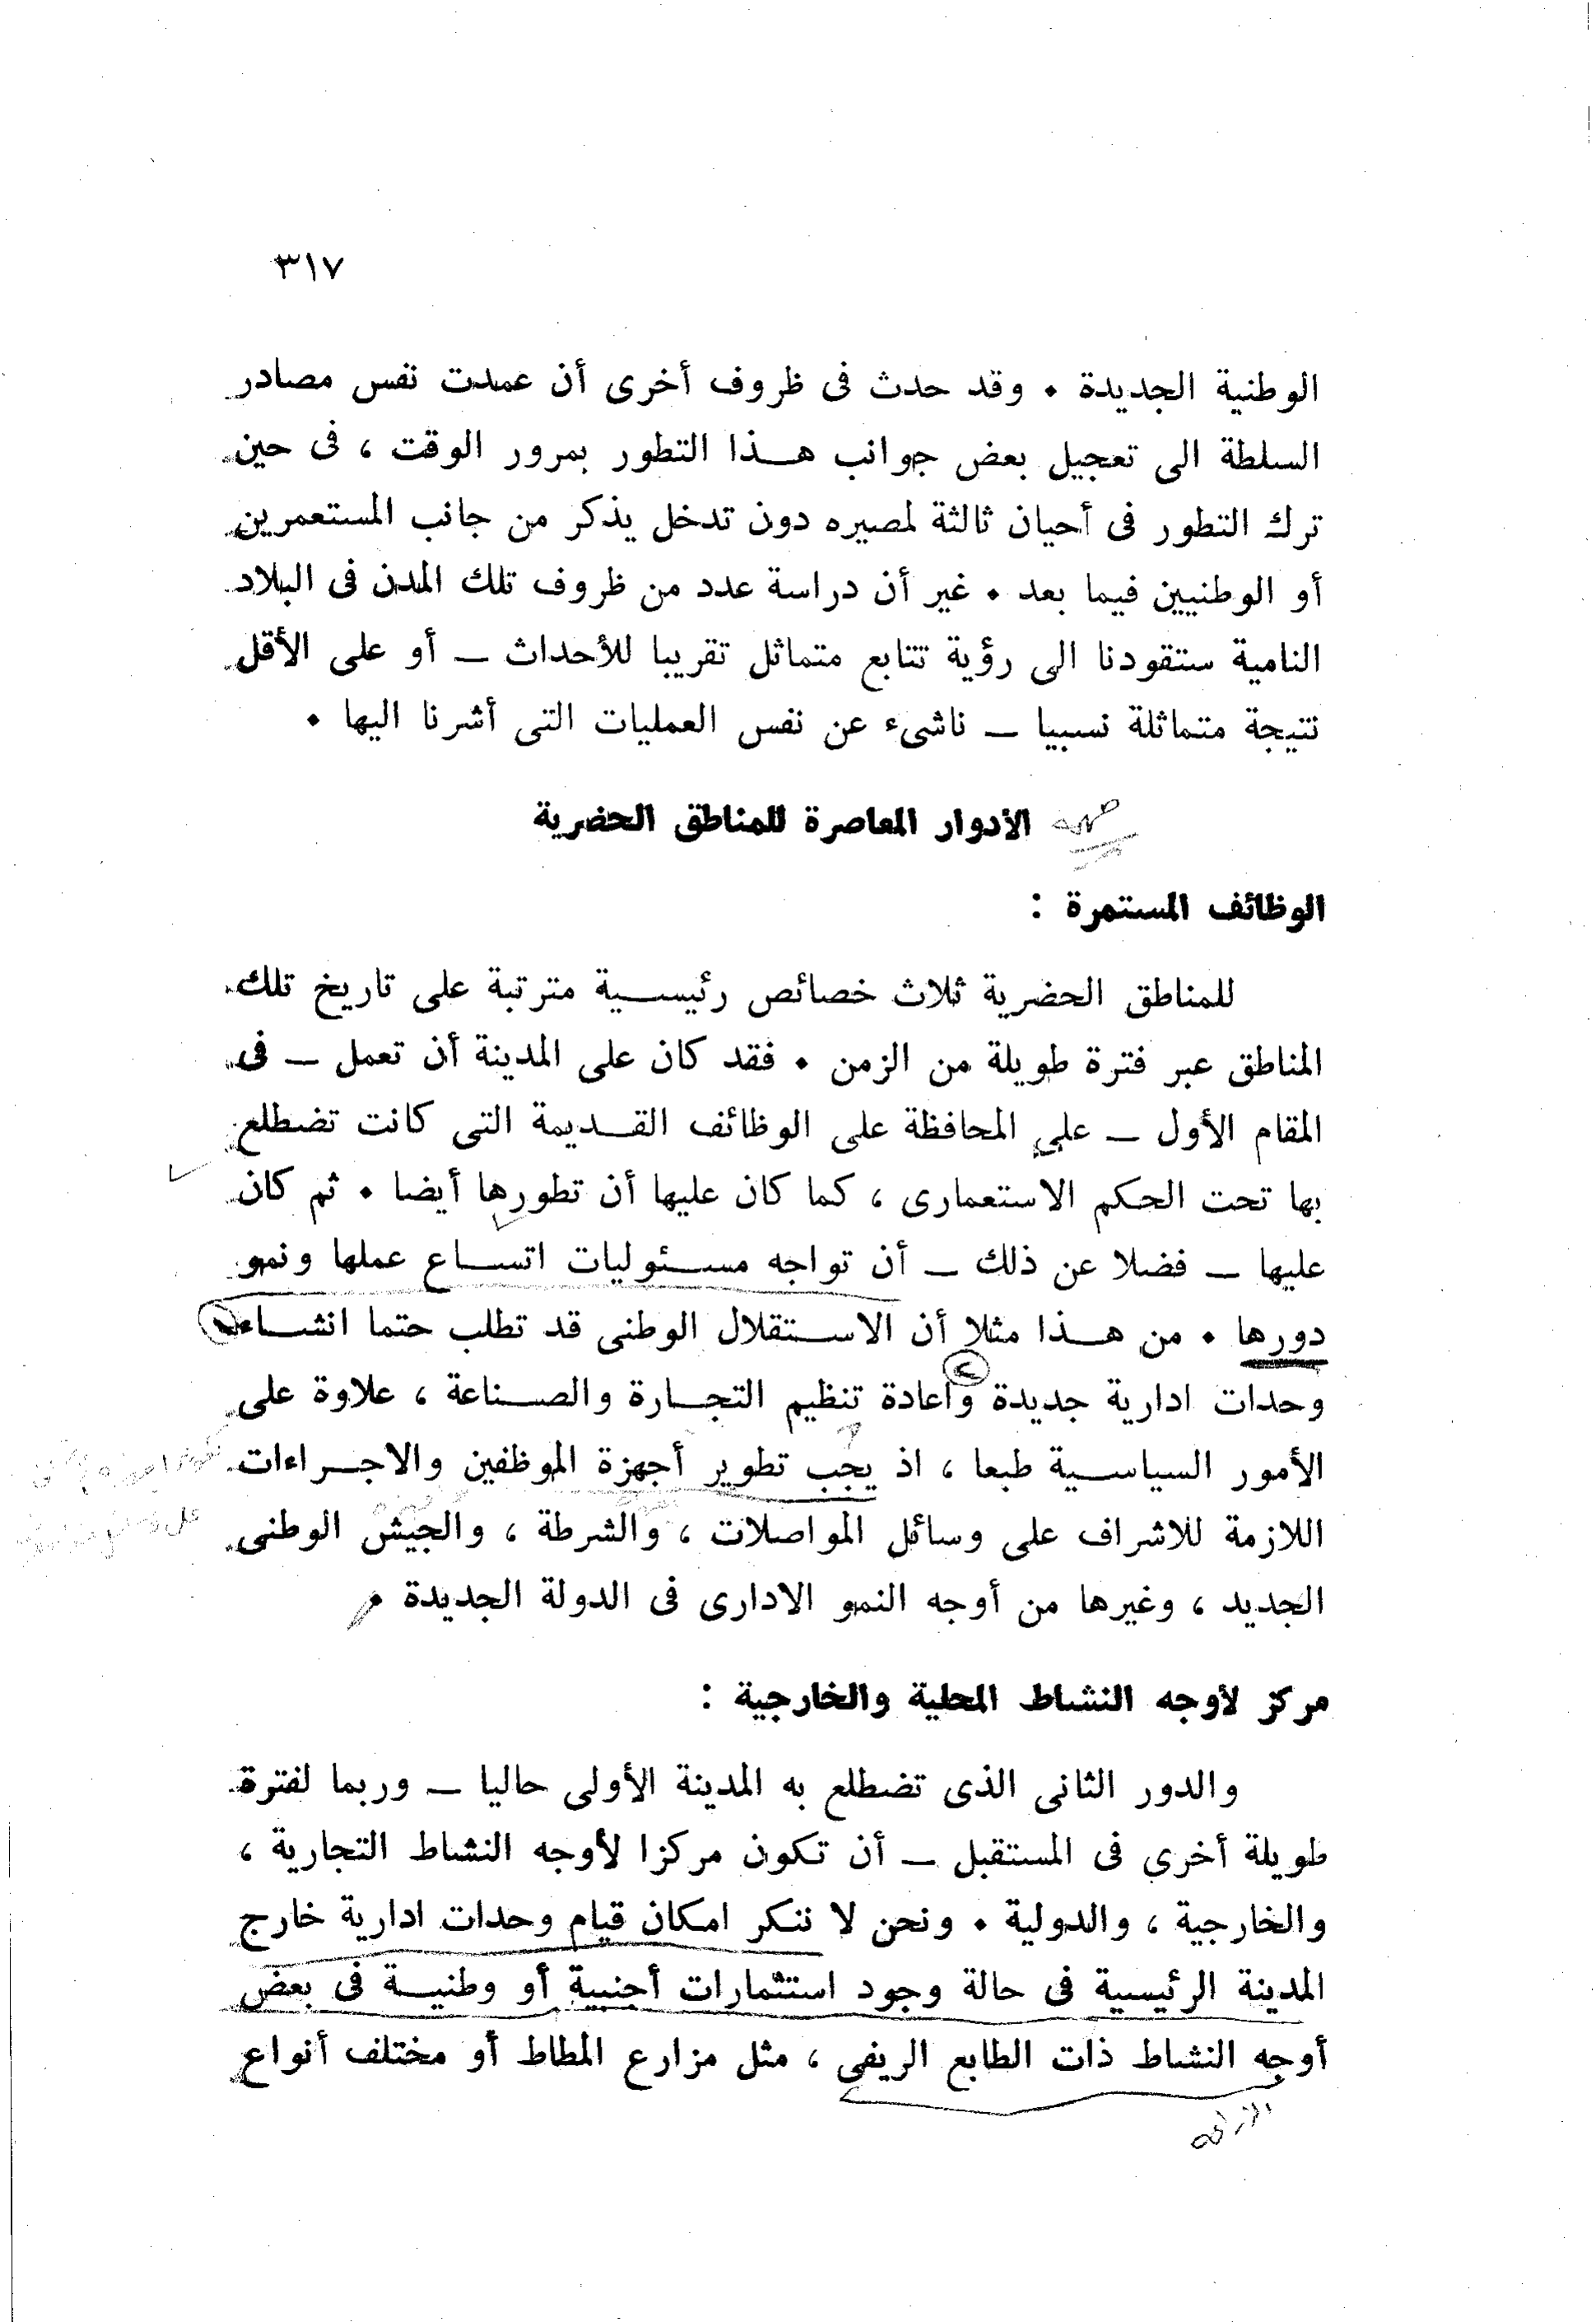 ٣١٧
الوطنية الجديدة • وقد حدث فى ظروف أخرى أن عمدت نفس مصادر
السلطة الى تعجيل بعض جوانب هذا التطور بمرور الوقت ، فى حين
ترك التطور فى أحيان ثالثة لمصيره دون تدخل يذكر من جانب المستعمرين
أو الوطنيين فيما بعد • غير أن دراسة عدد من ظروف تلك المدن فى البلاد
النامية ستقودنا الى رؤية تتابع متماثل تقريبا للأحداث ــ أو على الأقل
نتيجة متماثلة نسبيا ــ ناشىء عن نفس العمليات التى أشرنا اليها •
الأدوار المعاصرة للمناطق الحضرية
الوظائف المستمرة :
للمناطق الحضرية ثلاث خصائص رئيسية مترتبة على تاريخ تلك
المناطق عبر فترة طويلة من الزمن • فقد كان على المدينة أن تعمل ــ فى
المقام الأول ــ على المحافظة على الوظائف القديمة التى كانت تضطلع
بها تحت الحكم الاستعمارى ، كما كان عليها أن تطورها أيضا • ثم كان
عليها ــ فضلا عن ذلك ــ أن تواجه مسئوليات اتساع عملها ونمو
دورها • من هذا مثلا أن الاستقلال الوطنى قد تطلب حتما انشاء
وحدات ادارية جديدة واعادة تنظيم التجارة والصناعة ، علاوة على
الأمور السياسية طبعا ، اذ يجب تطوير أجهزة الموظفين والاجراءات
اللازمة للاشراف على وسائل المواصلات ، والشرطة ، والجيش الوطنى
الجديد ، وغيرها من أوجه النمو الادارى فى الدولة الجديدة •
مركز لأوجه النشاط المحلية والخارجية :
والدور الثانى الذى تضطلع به المدينة الأولى حاليا ــ وربما لفترة
طويلة أخرى فى المستقبل ــ أن تكون مركزا لأوجه النشاط التجارية ،
والخارجية ، والدولية • ونحن لا ننكر امكان قيام وحدات ادارية خارج
المدينة الرئيسية فى حالة وجود استثمارات أجنبية أو وطنية فى بعض
أوجه النشاط ذات الطابع الريفى ، مثل مزارع المطاط أو مختلف أنواع